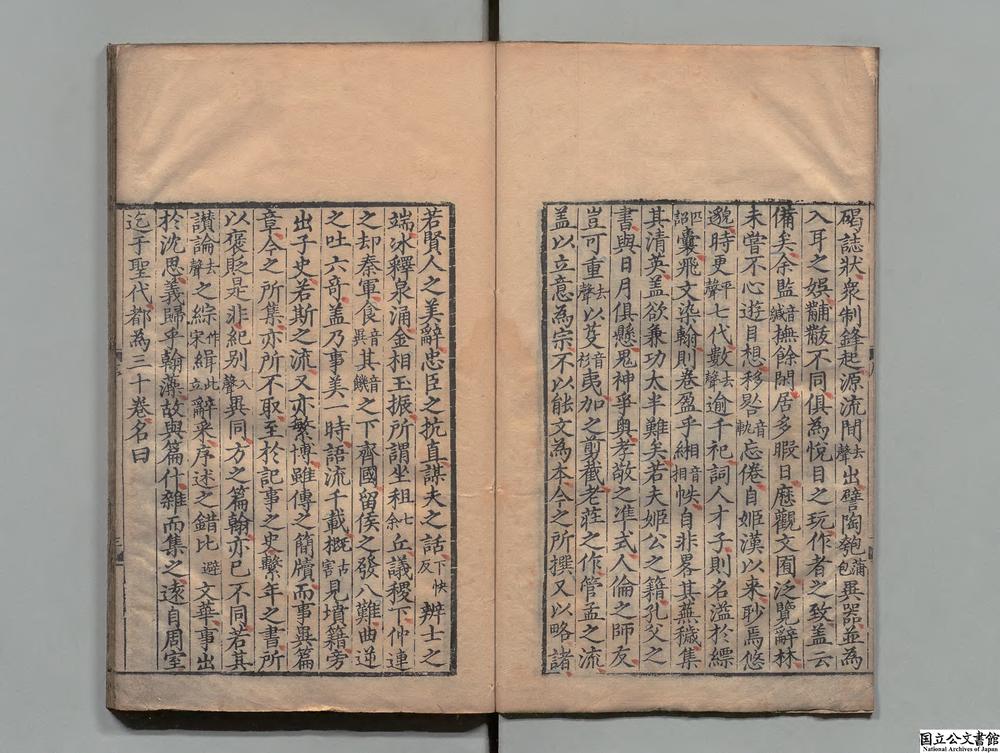 碣誌狀衆制鋒起源流間去聲出譬陶匏蒲包異器並爲
入耳之娛黼黻不同俱爲悅目之玩作者之致盖云
備矣余監音緘撫餘閑居多暇日歷觀文囿泛覽辭林
未嘗不心遊目想移晷音軌忘倦自姬漢以來眇焉悠
邈時更平聲七代數去聲逾千祀詞人才子則名溢於縹
匹詔囊飛文染翰則卷盈乎緗音相帙自非畧其蕪穢集
其清英盖欲兼功太半難矣若夫姬公之籍孔父之
書與日月俱懸鬼神爭奥孝敬之准式人倫之師友
豈可重去聲以芟音杉夷加之剪截老莊之作管孟之流
盖以立意爲宗不以能文爲本今之所撰又以略諸
若賢人之美辭忠臣之抗直謀夫之話下快反辨士之
端冰釋泉涌金相玉振所謂坐狙七余丘議稷下仲連
之却秦軍食音異其音饑之下齊國留侯之發八難曲逆
之吐六奇盖乃事美一時語流千載概古害見墳籍旁
出子史若斯之流又亦繁博雖傳之簡牘而事異篇
章今之所集亦所不取至於記事之史繫年之書所
以褒貶是非紀别入聲異同方之篇翰亦已不同若其
讃論去聲之綜作宋緝此立辭采序述之錯比避文華事出
於沈思義歸乎翰藻故與篇什雜而集之遠自周室
迄于聖代都爲三十卷名曰
国立公文書館
National Archives of Japan